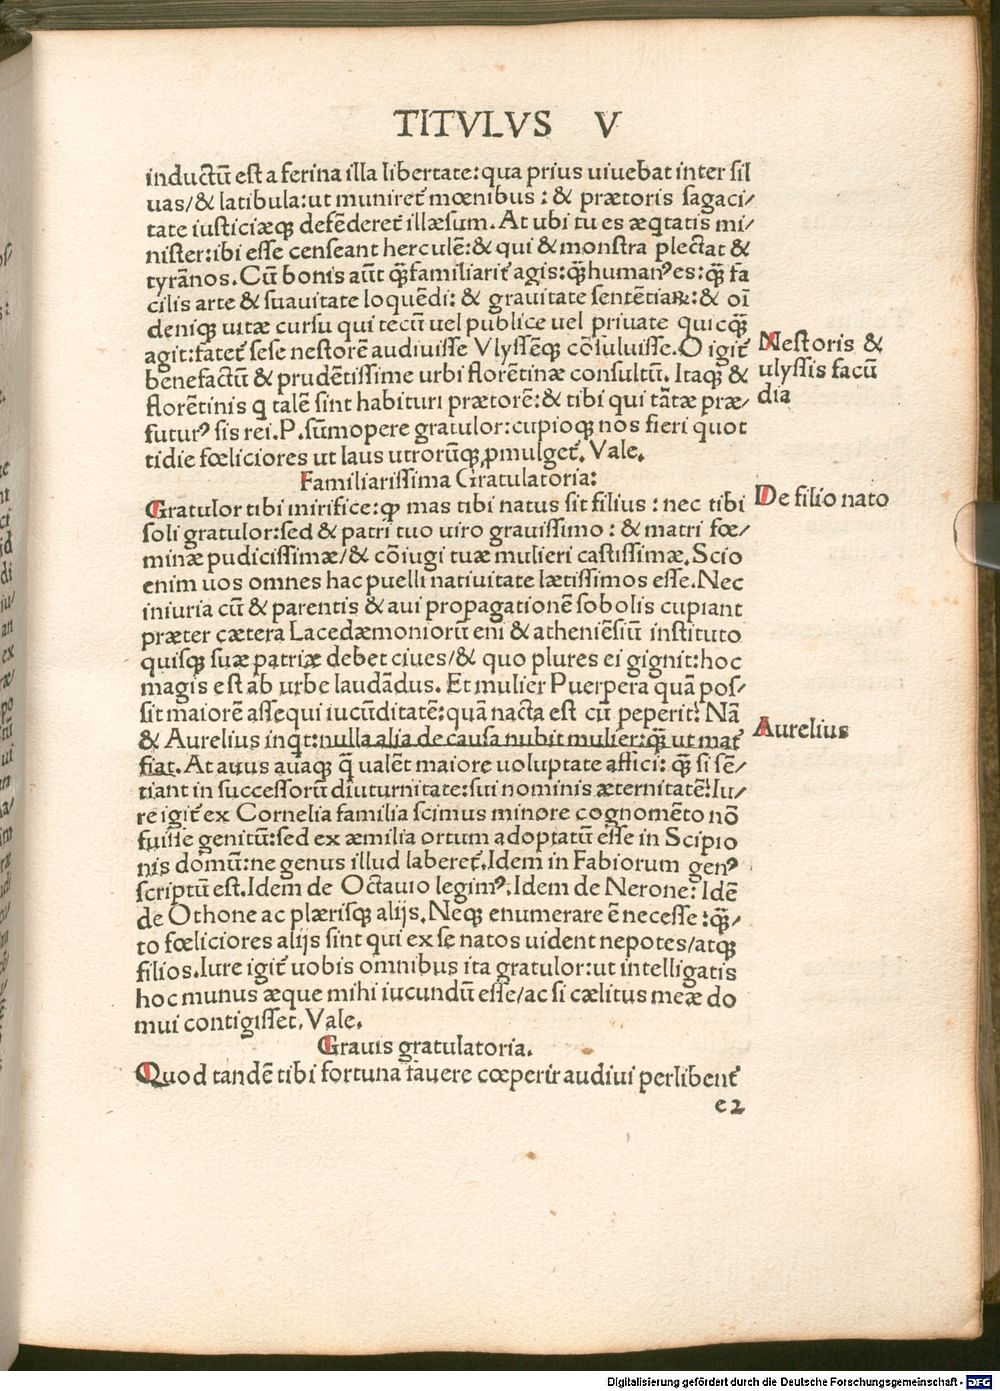 TITVLVS V
inductū est a ferina illa libertate: qua prius uiuebat inter sil
uas/& latibula: ut muniret᷑ mœnibus: & prætoris sagaci/
tate iusticiæqꝫ defēderet᷑ illæsum. At ubi tu es æqtatis mi/
nister: ibi esse censeant herculē: & qui & monstra plectat &
tyrānos. Cū bonis aūt qꝫ̄familiarit᷑ agis: qꝫ̄humanꝰes: qꝫ̄ fa
cilis arte & suauitate loquēdi: & grauitate sentētiaꝝ: & oī
deniqꝫ uitæ cursu qui tecū uel publice uel priuate quicqꝫ̄
agit: fatet᷑ sese nestorē audiuisse Vlyssēqꝫ cōiuluisse. O igit᷑
benefactū & prudētissime urbi florētinæ consultū. Itaqꝫ &
florētinis q talē sint habituri prætorē: & tibi qui tātæ præ/
futurꝰ sis rei. P. sūmopere gratulor: cupioqꝫ nos fieri quot
tidie fœliciores ut laus utrorūqꝫ ꝓmulget᷑. Vale.
Familiarissima Gratulatoria:
Gratulor tibi mirifice: ꝙ mas tibi natus sit filius: nec tibi
soli gratulor: sed & patri tuo uiro grauissimo: & matri fœ/
minæ pudicissimæ/& cōiugi tuæ mulieri castissimæ. Scio
enim uos omnes hac puelli natiuitate lætissimos esse. Nec
iniuria cū & parentis & aui propagationē sobolis cupiant
præter cætera Lacedæmoniorū eni & atheniēsiū instituto
quisqꝫ suæ patriæ debet ciues/& quo plures ei gignit: hoc
magis est ab urbe laudādus. Et mulier Puerpera quā pos/
sit maiorē assequi iucūditatē: quā nacta est cū peperit: Nā
& Aurelius inqt: nulla alia de causa nubit mulier: qꝫ̄ ut mat᷑
fiat. At auus auaqꝫ q̄ ualēt maiore uoluptate affici: qꝫ̄ si sē/
tiant in successorū diuturnitate: sui nominis æternitatē: Iu/
re igit᷑ ex Cornelia familia scimus minore cognomēto nō
fuisse genitū: sed ex æmilia ortum adoptatū esse in Scipio
nis domū: ne genus illud laberet᷑. Idem in Fabiorum genꝰ
scriptū est. Idem de Octauio legimꝰ. Idem de Nerone: Idē
de Othone ac plærisqꝫ alijs. Neqꝫ enumerare ē necesse: qꝫ̄/
to fœliciores alijs sint qui ex se natos uident nepotes/atqꝫ
filios. Iure igit᷑ uobis omnibus ita gratulor: ut intelligatis
hoc munus æque mihi iucundū esse/ac si cælitus meæ do
mui contigisset. Vale.
Grauis gratulatoria.
Quod tandē tibi fortuna fauere cœperit audiui perlibent᷑
e2
Nestoris &
ulyssis facū
dia
De filio nato
Aurelius
Digitalisierung gefördert durch die Deutsche Forschungsgemeinschaft - DFG